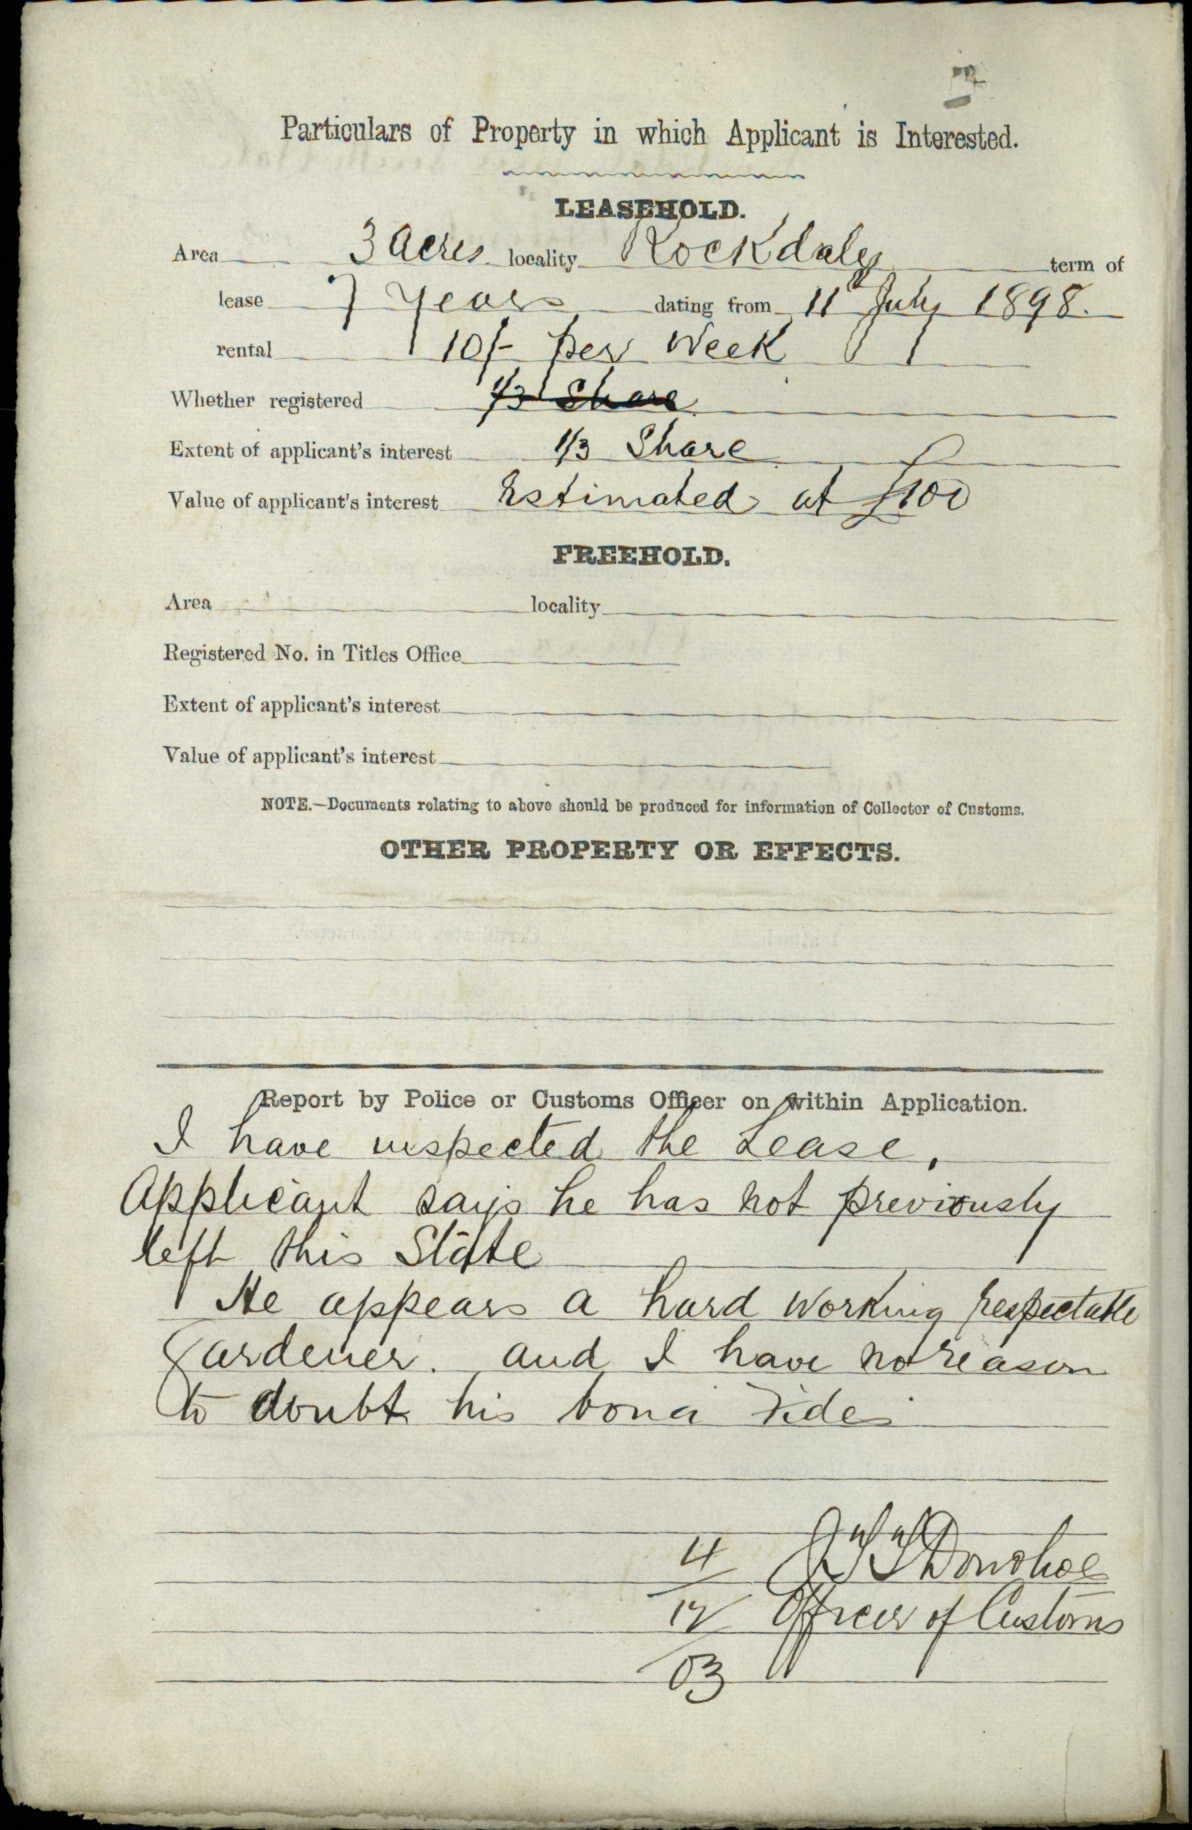 Particulars of Property in which Applicant is Interested.
LEASEHOLD.
Area 3 Acres locality Rockdale term of
lease 7 Years dating from 11th July 1898.
rental 10/- per Week
Whether registered 1/3 Share
Extent of applicant's interest 1/3 Share
Value of applicant's interest Estimated at £100
FREEHOLD.
Area locality
Registered No. in Titles Office
Extent of applicant's interest
Value of applicant's interest
NOTE.—Documents relating to above should be produced for information of Collector of Customs.
OTHER PROPERTY OR EFFECTS.
Report by Police or Customs Officer on within Application.
I have inspected the Lease,
Applicant says he has not previously
left this State
He appears a hard working respectable
Gardener. and I have no reason
to doubt his bona fides
4 Donohoe
12 Officer of Customs
03